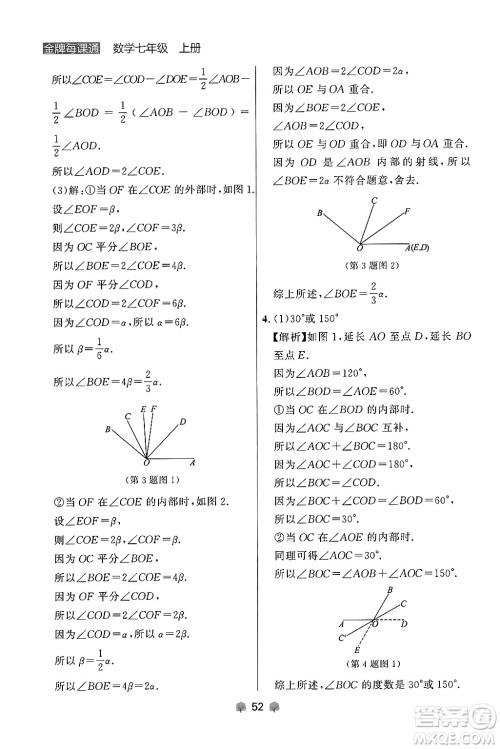 金牌每课通 数学七年级 上册
所以∠COE=∠COD-∠DOE=1/2∠AOB-
1/2∠BOD=1/2(∠AOB-∠BOD)=
1/2∠AOD.
所以∠AOD=2∠COE.
(3)解:①当OF在∠COE的外部时,如图1.
设∠EOF=β,
则∠COE=2β,∠COF=3β.
因为OC平分∠BOE,
所以∠BOE=4β.
因为∠AOB=2∠COD,
所以∠COD=α,所以∠BOF=α.
所以β=1/6α.
所以∠BOE=4β=2/3α.
C E F
B D
O A
(第3题图1)
②当OF在∠COE的内部时,如图2.
设∠EOF=β,
则∠COE=2β,∠COF=β.
因为OC平分∠BOE,
所以∠BOE=4β.
因为∠AOB=2∠COD,
所以∠COD=α,所以∠BOF=α.
所以∠BOE=2α.
因为∠AOB=2∠COD=2α,
所以OE与OA重合.
所以OD与OE重合,即OD与OA重合.
因为OD是∠AOB内部的射线,所以
∠BOE=2α不符合题意,舍去.
C
B F
O A(E,D)
(第3题图2)
综上所述,∠BOE=2/3α.
4.(1)30°或150°
【解析】如图1,延长AO至点D,延长BO
至点E.
因为∠AOB=120°,
所以∠BOD=∠AOE=60°.
①当OC在∠BOD的内部时.
因为∠AOC与∠BOC互补,
所以∠AOC+∠BOC=180°.
因为∠AOC+∠COD=180°,
所以∠BOC=∠COD.
因为∠BOC+∠COD=∠BOD=60°,
所以∠BOC=30°.
②当OC在∠AOE的内部时.
同理可得∠AOC=30°.
所以∠BOC=150°.
B
C
A O D
C
E
(第4题图1)
综上所述,∠BOC的度数是30°或150°.
52